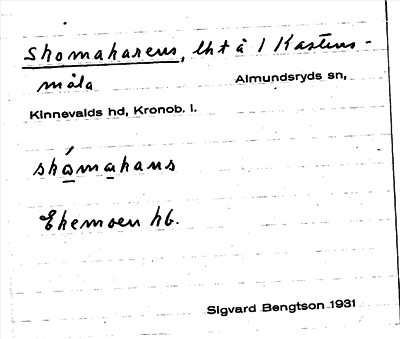 Skomakarens, lht å 1 Kastens-
måla Almundsryds sn,
Kinnevalds hd, Kronob. l.
skåmakans
Ekemoen hb.
Sigvard Bengtson 1931